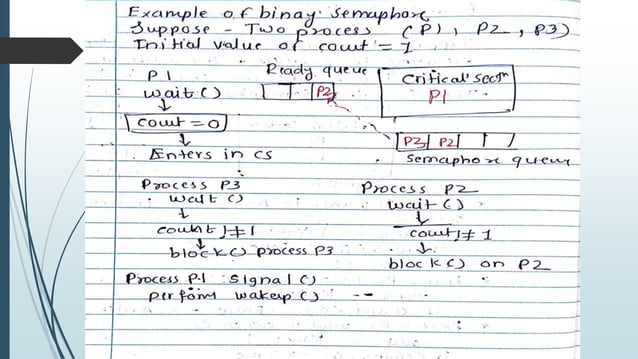 Example of binay semaphore
Suppose - Two process (P1, P2, P3)
Initial value of count = 1
P1
Ready queue
Critical Sectn
wait()
P2
P1
count = 0
P2 P2
Enters in cs
semaphore queue
Process P3
Process P2
wait ()
wait()
count != 1
count != 1
block() process P3
block() on P2
Process P1 signal()
perform wakeup() --